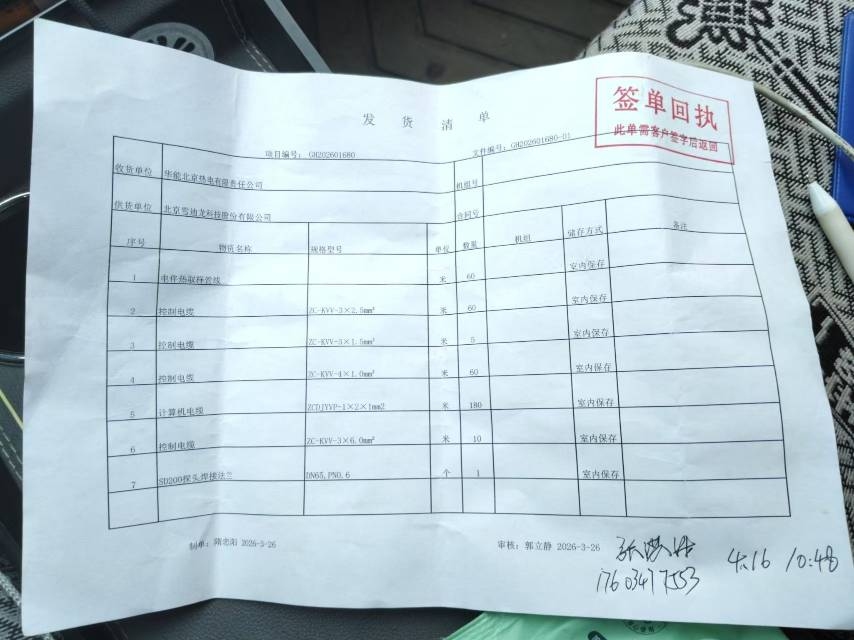 签单回执
此单需客户签字后返回
发 货 清 单
项目编号: GH202601680 文件编号: GH202601680-01
收货单位 华能北京热电有限责任公司 机组号
供货单位 北京雪迪龙科技股份有限公司 合同号
序号 物资名称 规格型号 单位 数量 机组 储存方式 备注
1 电伴热取样管线 米 60 室内保存
2 控制电缆 ZC-KVV-3×2.5mm² 米 60 室内保存
3 控制电缆 ZC-KVV-3×1.5mm² 米 5 室内保存
4 控制电缆 ZC-KVV-4×1.0mm² 米 60 室内保存
5 计算机电缆 ZCDJYVP-1×2×1mm2 米 180 室内保存
6 控制电缆 ZC-KVV-3×6.0mm² 米 10 室内保存
7 SD200探头焊接法兰 DN65,PN0.6 个 1 室内保存
制单: 隋忠阳 2026-3-26 审核: 郭立静 2026-3-26
17603417553 4.16 10:48